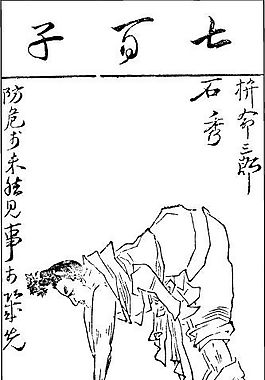 七百子
拚命三郎
石秀
防危于未然見事于幾先